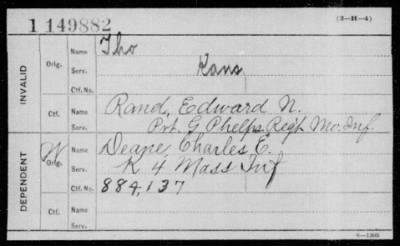 1149882
(3—31—4)
INVALID
Orig.
Name Tho
Serv. Kans
Ctf. No.
Ctf.
Name Rand, Edward N.
Serv. Pvt. G Phelps Regt Mo. Inf.
DEPENDENT
W
Orig.
Name Deane, Charles E.
Serv. K 4 Mass Inf
Ctf. No. 884,137
Ctf.
Name
Serv.
6—1303